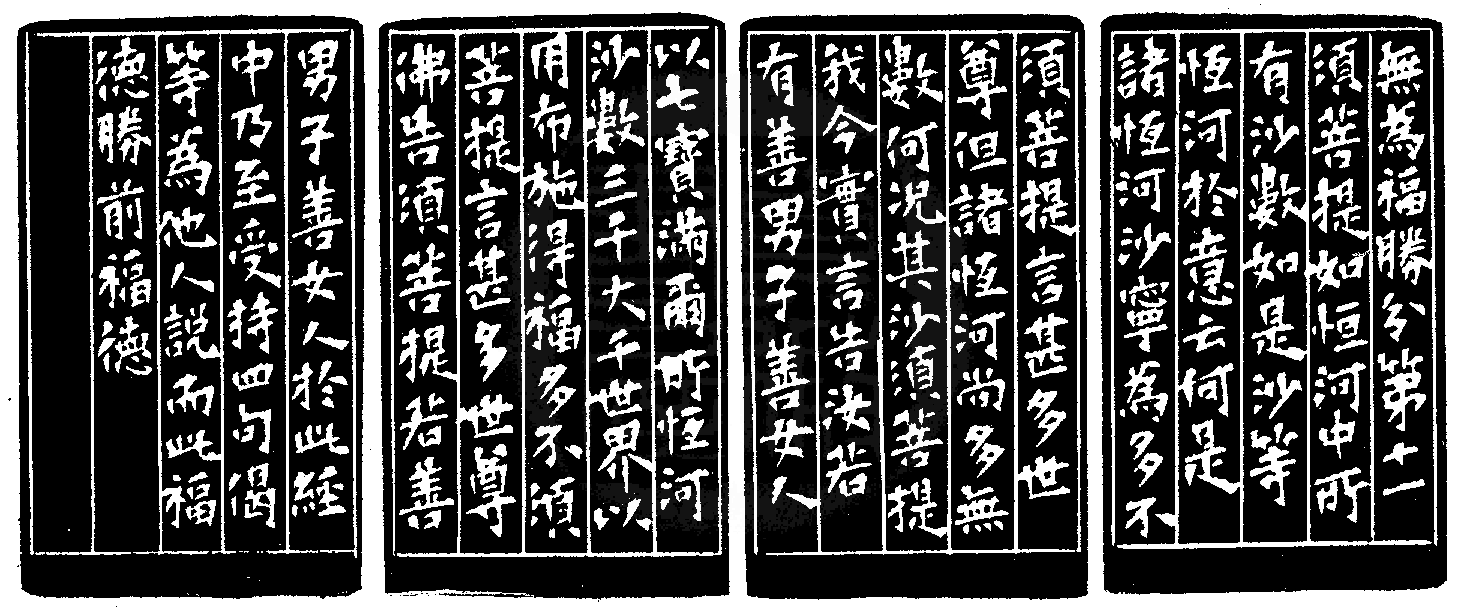 無為福勝分第十一
須菩提如恒河中所
有沙數如是沙等
恆河於意云何是
諸恆河沙寧為多不
須菩提言甚多世
尊但諸恆河尚多無
數何況其沙須菩提
我今實言告汝若
有善男子善女人
以七寶滿爾所恆河
沙數三千大千世界以
用布施得福多不須
菩提言甚多世尊
佛告須菩提若善
男子善女人於此經
中乃至受持四句偈
等為他人說而此福
德勝前福德